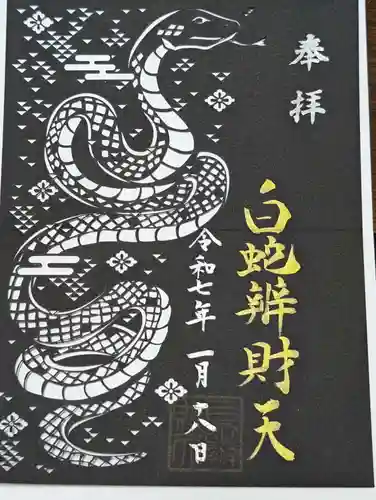 奉拝
白蛇辨財天
令和七年 一月 六日